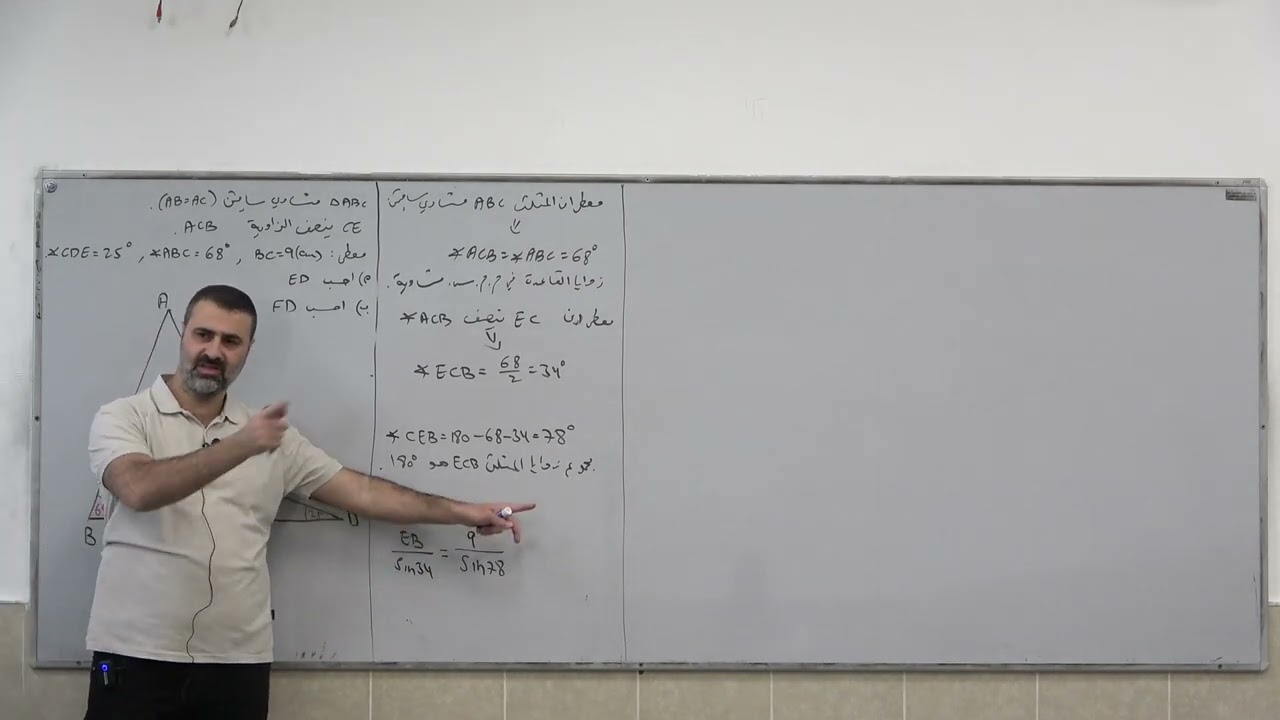 ΔABC متساوي ساقين (AB=AC).
CE ينصف الزاوية ACB.
معطى: BC=9(cm) , ∢ABC=68° , ∢CDE=25°.
أ) احسب ED
ب) احسب FD
A
B
D
معطى ان المثلث ABC متساوي ساقين
⇓
∢ACB=∢ABC=68°
زوايا القاعدة في م.م.س. متساوية.
معطى ان EC ينصف ∢ACB
⇓
∢ECB= 68/2 =34°
∢CEB=180-68-34=78°
مجموع زوايا المثلث ECB هو 180°.
EB/Sin34 = 9/Sin78